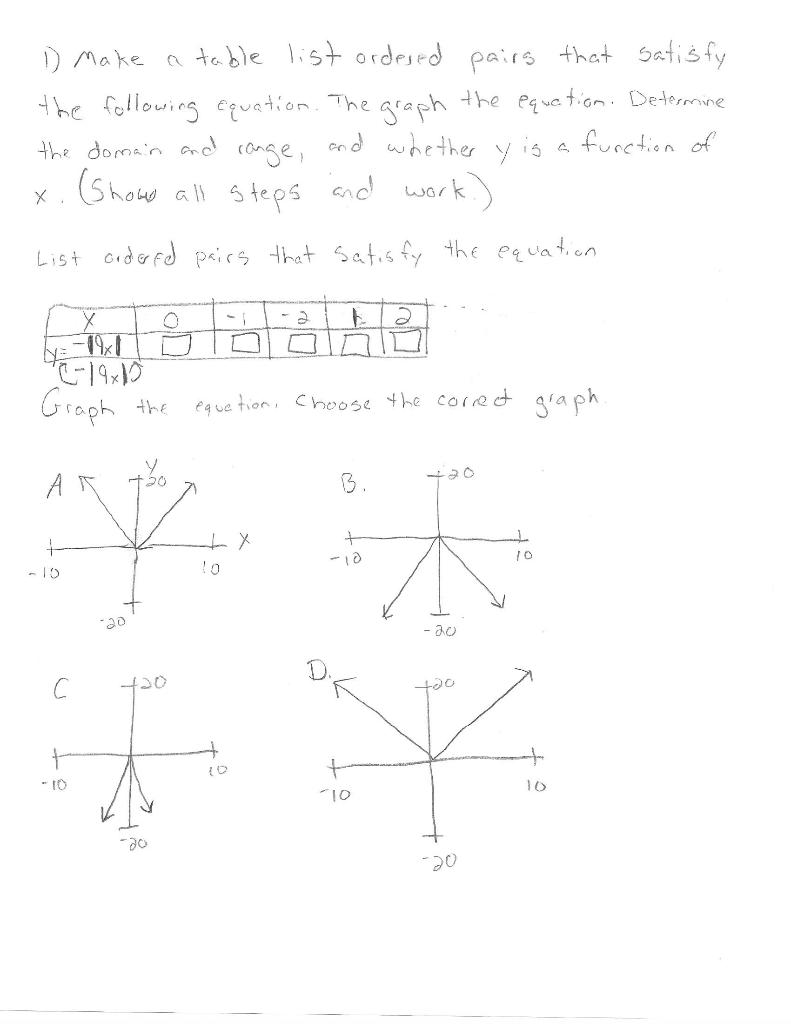 1) Make a table list ordered pairs that satisfy
the following equation. The graph the equation. Determine
the domain and range, and whether y is a function of
x. (Show all steps and work.)
List ordered pairs that satisfy the equation
x 0 -1 -2 1 2 ...
y= -|9x|
(-|9x|)
Graph the equation, Choose the correct graph.
A y 20 x -10 10 -20
B. 20 -10 10 -20
C 20 -10 10 -20
D. 20 -10 10 -20